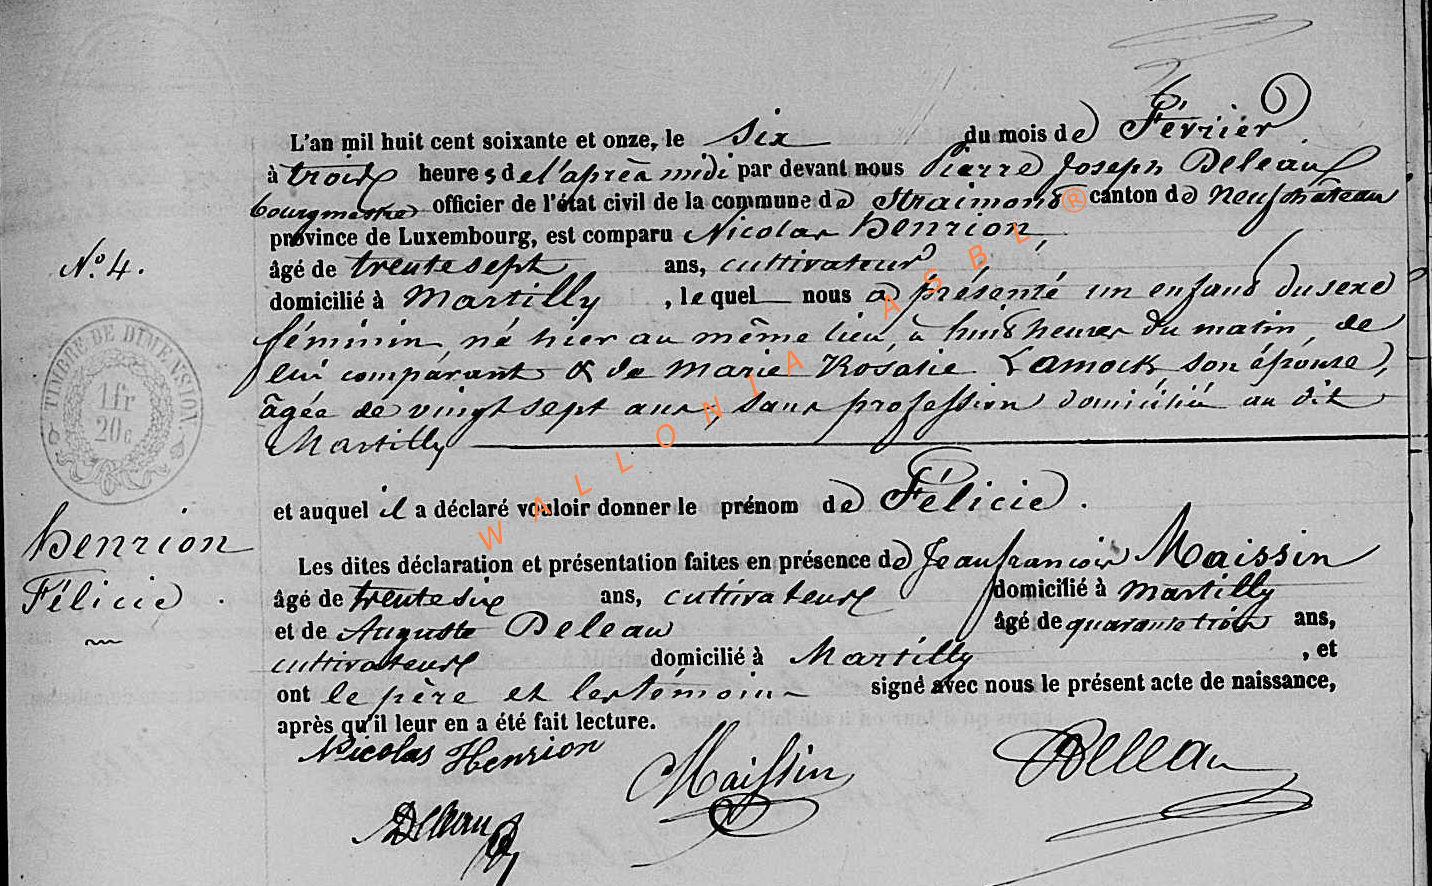 L'an mil huit cent soixante et onze, le six du mois de Février
à trois heures de l'après midi par devant nous Pierre Joseph Deleau
bourgmestre officier de l'état civil de la commune de Straimont canton de Neufchateau
province de Luxembourg, est comparu Nicolas henrion,
âgé de trente sept ans, cultivateur
domicilié à Martilly, lequel nous a présenté un enfant du sexe
féminin né hier au même lieu, à huit heures du matin, de
lui comparant & de Marie Rosalie Lamock son épouse,
âgée de vingt sept ans, sans profession domiciliée au dit
Martilly
et auquel il a déclaré vouloir donner le prénom de Félicie.
Les dites déclaration et présentation faites en présence de Jeanfrancois Maissin
âgé de trente six ans, cultivateur domicilié à Martilly
et de Auguste Deleau âgé de quarante trois ans,
cultivateur domicilié à Martilly, et
ont le père et les témoins signé avec nous le présent acte de naissance,
après qu'il leur en a été fait lecture.
Nicolas Henrion Maissin Deleau
Deleau
N.º 4.
TIMBRE DE DIMENSION
1 fr
20 c
henrion
Félicie.
WALLONIA ASBL ®